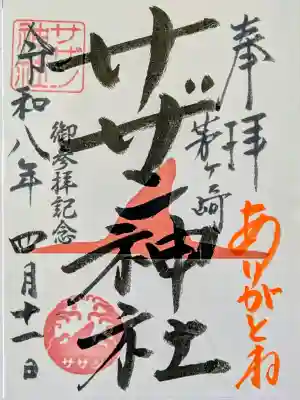 奉拝
茅ヶ崎
ありがとね
サザン神社
御参拝記念
サザン
神社
令和八年 四月十一日
サザン